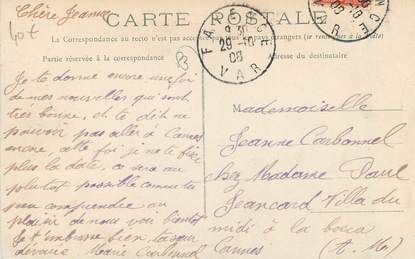 Chère Jeanne
CARTE POSTALE
La Correspondance au recto n'est pas acceptée par tous les pays étrangers (se renseigner à la Poste)
Partie réservée à la correspondance
Adresse du destinataire
FAYENCE
9 30
29 -10
08
VAR
Je te donne encore une foi
de mes nouvelles qui sont
très bonne, et te dit ne
pouvoir pas aller à Cannes
encore, elle foi je ne te fixe
plus la date, ce sera au
plutot possible comme tu
peu comprendre au
plaisir de nous voir bientot
Je t'embrasse bien, ta sœur
dévouée Marie Carbonnel
Mademoiselle
Jeanne Carbonnel
chez Madame Paul
Jeancard Villa du
midi à la bocca
Cannes (A. M.)